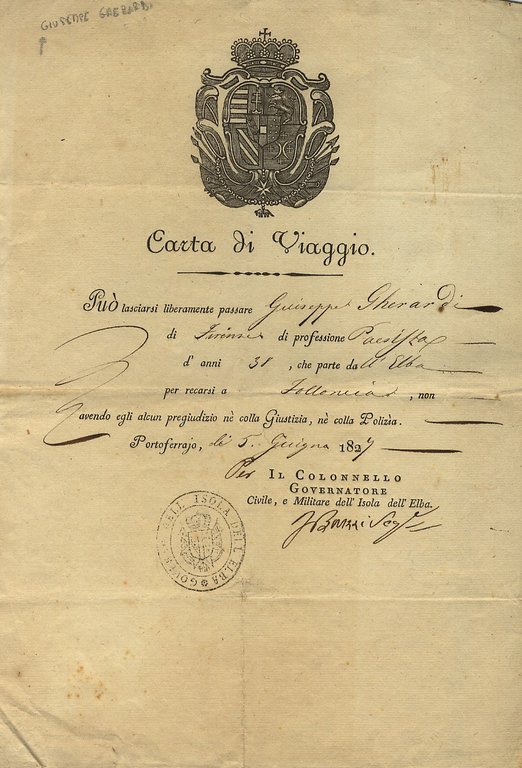 GIUSEPPE GHERARDI
Carta di Viaggio.
Può lasciarsi liberamente passare Giuseppe Gherardi
di Firenze di professione Paesista
d' anni 38, che parte dall' Elba
per recarsi a Follonica, non
avendo egli alcun pregiudizio nè colla Giustizia, nè colla Polizia.
Portoferrajo, di 5. Giugno 1827
Per IL COLONNELLO
GOVERNATORE
Civile, e Militare dell' Isola dell' Elba.
GOVERNO DELL ISOLA DELL' ELBA